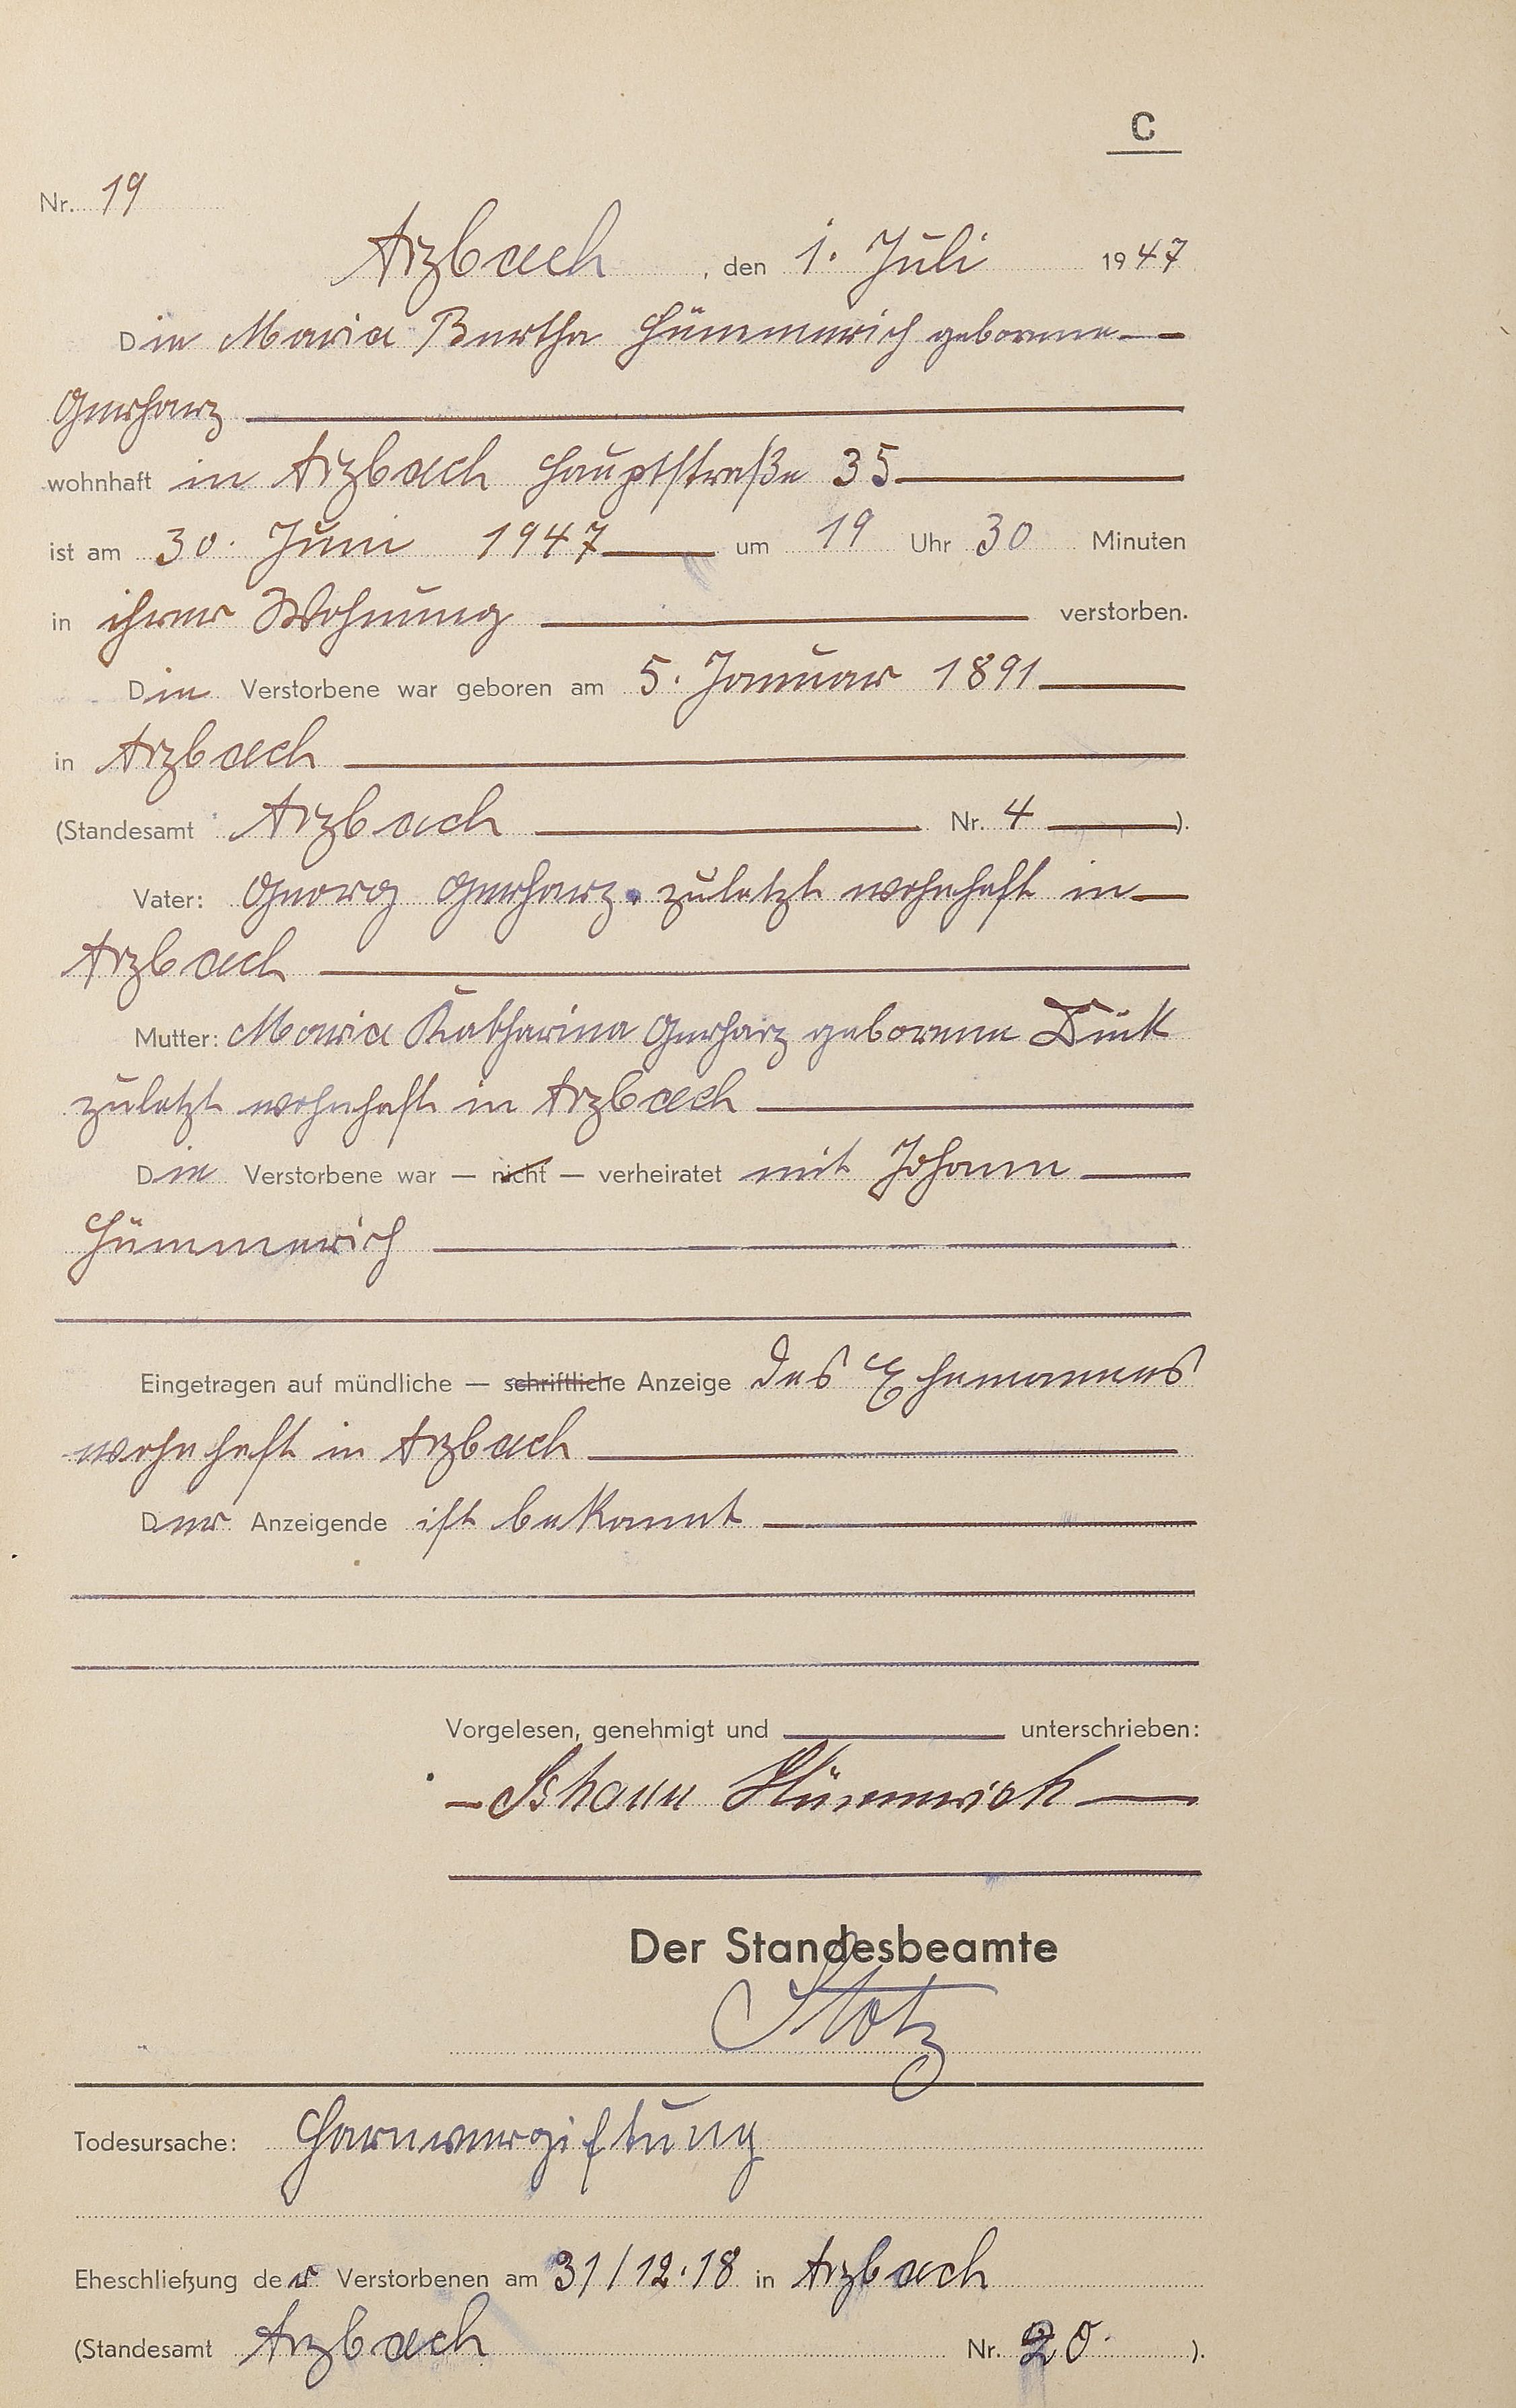 C
Nr. 19
Arzbach, den 1. Juli 1947
Die Maria Bertha Hümmerich geborene
Gerharz
wohnhaft in Arzbach Hauptstraße 35
ist am 30. Juni 1947 um 19 Uhr 30 Minuten
in ihrer Wohnung verstorben.
Die Verstorbene war geboren am 5. Januar 1891
in Arzbach
(Standesamt Arzbach Nr. 4).
Vater: Georg Gerharz, zuletzt wohnhaft in
Arzbach
Mutter: Maria Katharina Gerharz geborene Dück
zuletzt wohnhaft in Arzbach
Die Verstorbene war — nicht — verheiratet mit Johann
Hümmerich
Eingetragen auf mündliche — schriftliche Anzeige des Ehemannes
wohnhaft in Arzbach
Der Anzeigende ist bekannt
Vorgelesen, genehmigt und unterschrieben:
Johann Hümmerich
Der Standesbeamte
Stotz
Todesursache: Harnvergiftung
Eheschließung der Verstorbenen am 31/12.18 in Arzbach
(Standesamt Arzbach Nr. 20.).